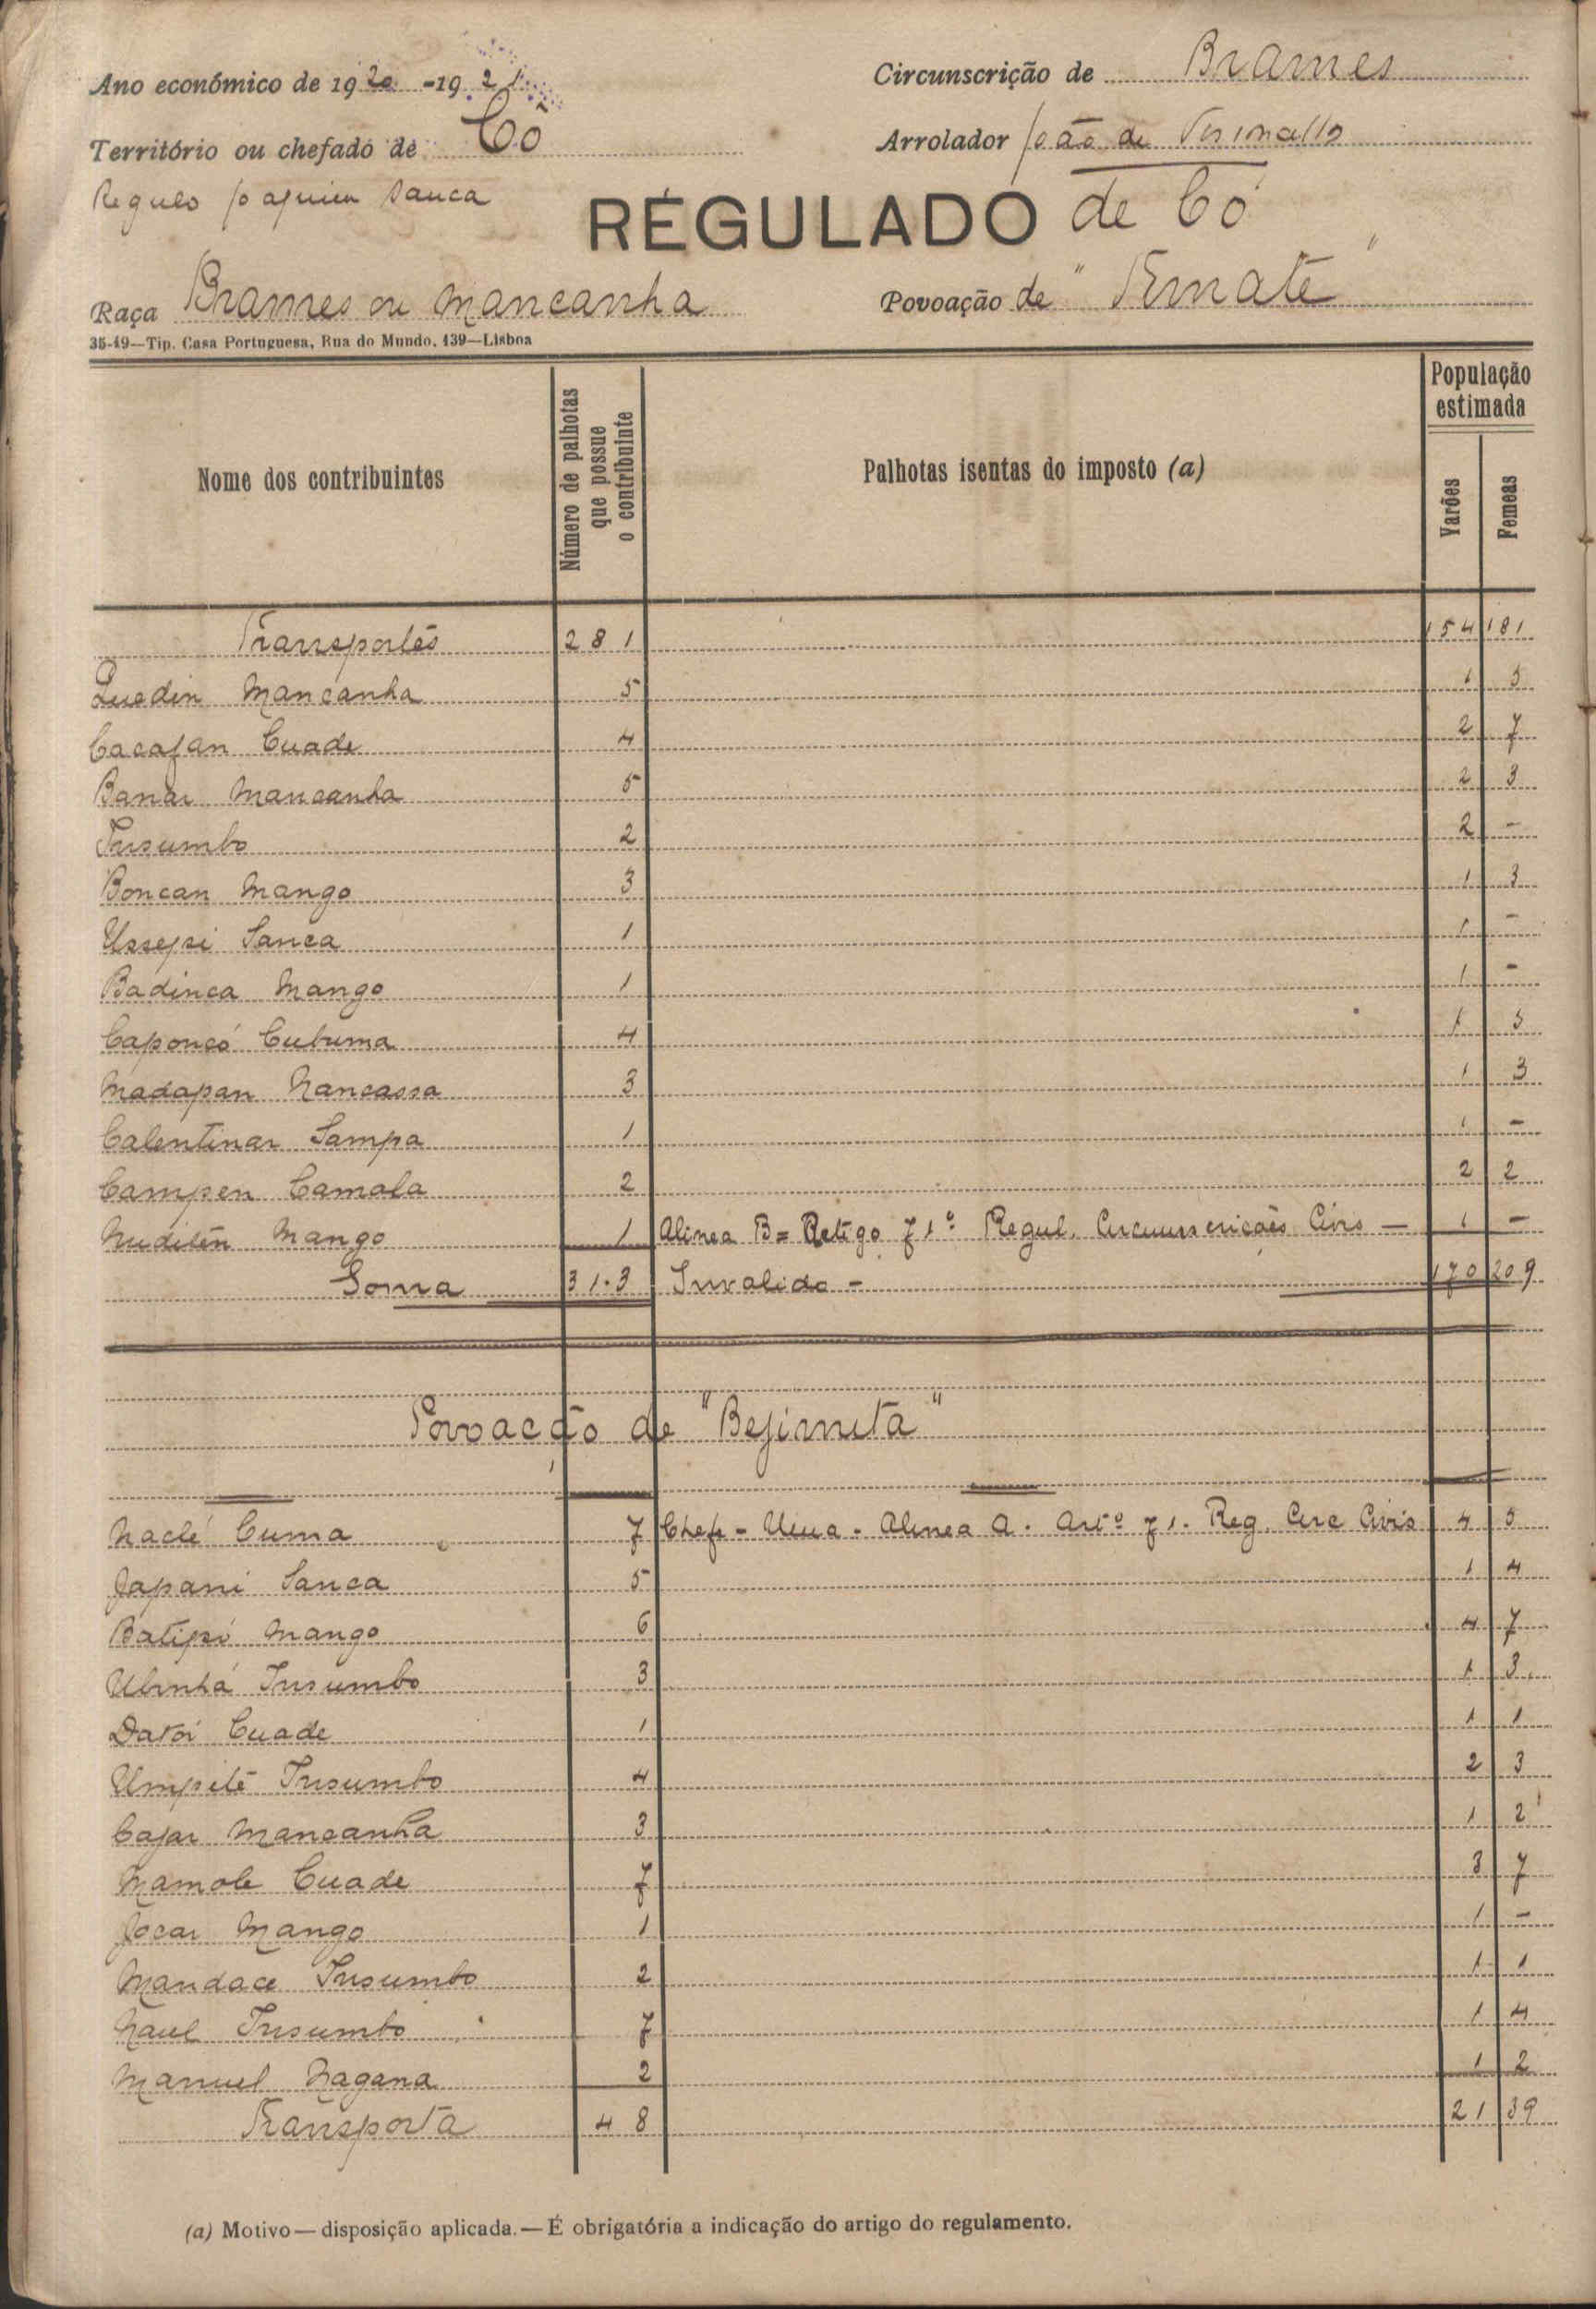 Ano económico de 1920-1921 Circunscrição de Brames
Território ou chefado de Cô Arrolador João de
Regulo Joaquim Sanca
RÉGULADO de Có
Raça Brames ou Mancanha Povoação de "Ternate"
35-19—Tip. Casa Portuguesa, Rua do Mundo, 139—Lisboa
Nome dos contribuintes Número de palhotas que possue o contribuinte Palhotas isentas do imposto (a) População estimada Varões Femeas
Transportes 281 154 181
Quedin Mancanha 5 1 5
Cacafan Cuade 4 2 7
Banar Mancanha 5 2 3
Insumbo 2 2 -
Boncan Mango 3 1 3
Ussepi Sanca 1 1 -
Badinca Mango 1 1 -
Caponcó Cutuma 4 1 5
Madapan Nancassa 3 1 3
Calentinar Sampa 1 1 -
Campen Camala 2 2 2
Nudilên Mango 1 Alinea B = Artigo 71º Regul. Circunscrições Civis — 1 -
Soma 313 Invalido - 170 209
Povoacção de "Bejimita"
Naclé Cuma 7 Chefe - Uma - Alinea A. Artº 71. Reg. Circ Civis 4 5
Japani Sanca 5 1 4
Batipó Mango 6 4 7
Ubinhá Insumbo 3 1 3
Datoi Cuade 1 1 1
Umpité Insumbo 4 2 3
Cajar Mancanha 3 1 2
Namole Cuade 7 3 7
Jocar Mango 1 1 -
Mandace Insumbo 2 1 1
Naul Insumbo 7 1 4
Manuel Nagana 2 1 2
Transporta 48 21 39
(a) Motivo — disposição aplicada. — É obrigatória a indicação do artigo do regulamento.